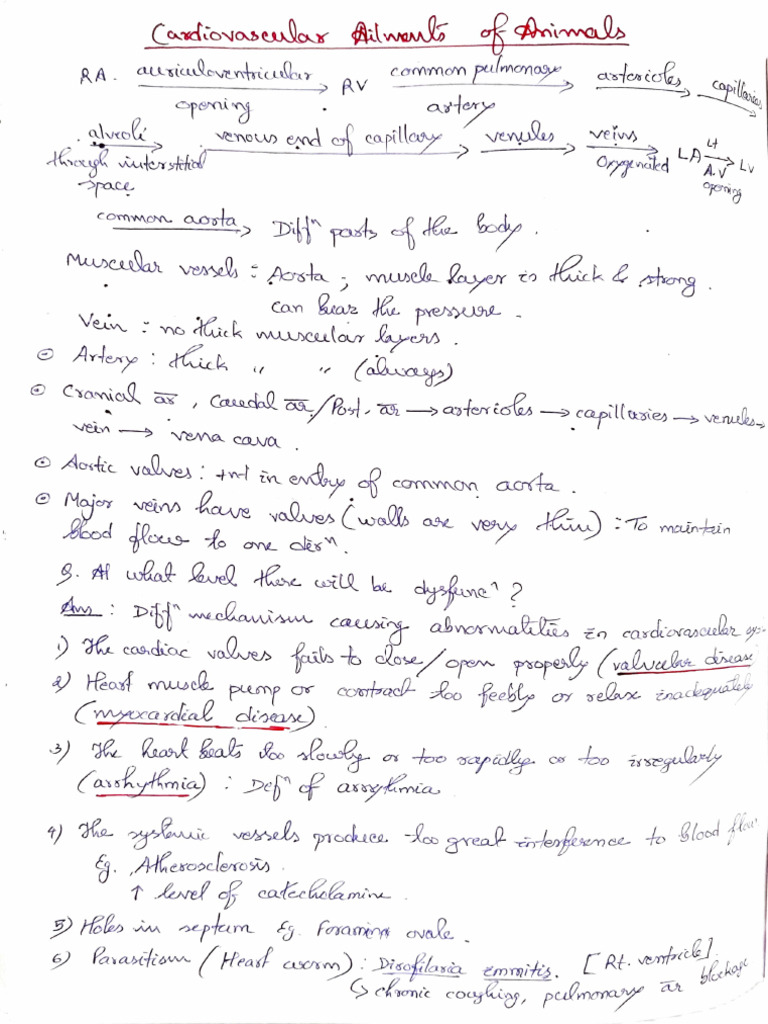 Cardiovascular Ailments of Animals
RA. auriculoventricular opening → RV common pulmonary artery → arterioles → capillaries →
alveoli through interstitial space → venous end of capillary → venules → veins Oxygenated → LA Lt A.V opening → LV
common aorta → Diffⁿ parts of the body.
Muscular vessels : Aorta ; muscle layer is thick & strong.
can bear the pressure.
Vein : no thick muscular layers.
⊙ Artery : thick " " (always)
⊙ Cranial ar, Caudal ar/Post. ar → arterioles → capillaries → venules →
vein → vena cava.
⊙ Aortic valves : +nt in entry of common aorta.
⊙ Major veins have valves (walls are very thin) : To maintain
blood flow to one dirⁿ.
Q. At what level there will be dysfuncⁿ ?
Ans : Diffⁿ mechanism causing abnormalities in cardiovascular sys-
1) The cardiac valves fails to close/open properly (valvular disease
2) Heart muscle pump or contract too feebly or relax inadequately
(myocardial disease)
3) The heart beats too slowly or too rapidly or too irregularly
(arrhythmia) : Defⁿ of arrythmia
4) The systemic vessels produce too great interference to blood flow
Eg. Atherosclerosis.
↑ level of catecholamine.
5) Holes in septum Eg. Foramen ovale.
6) Parasitism (Heart worm) : Dirofilaria emmitis. [Rt. ventricle]
↳ chronic coughing, pulmonary ar blockage